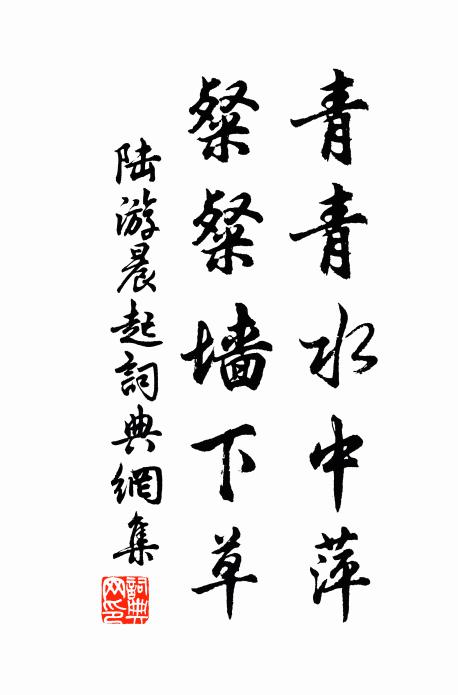 青青水中萍
粲粲墙下草
陆游晨起詞典網集
詞典網印